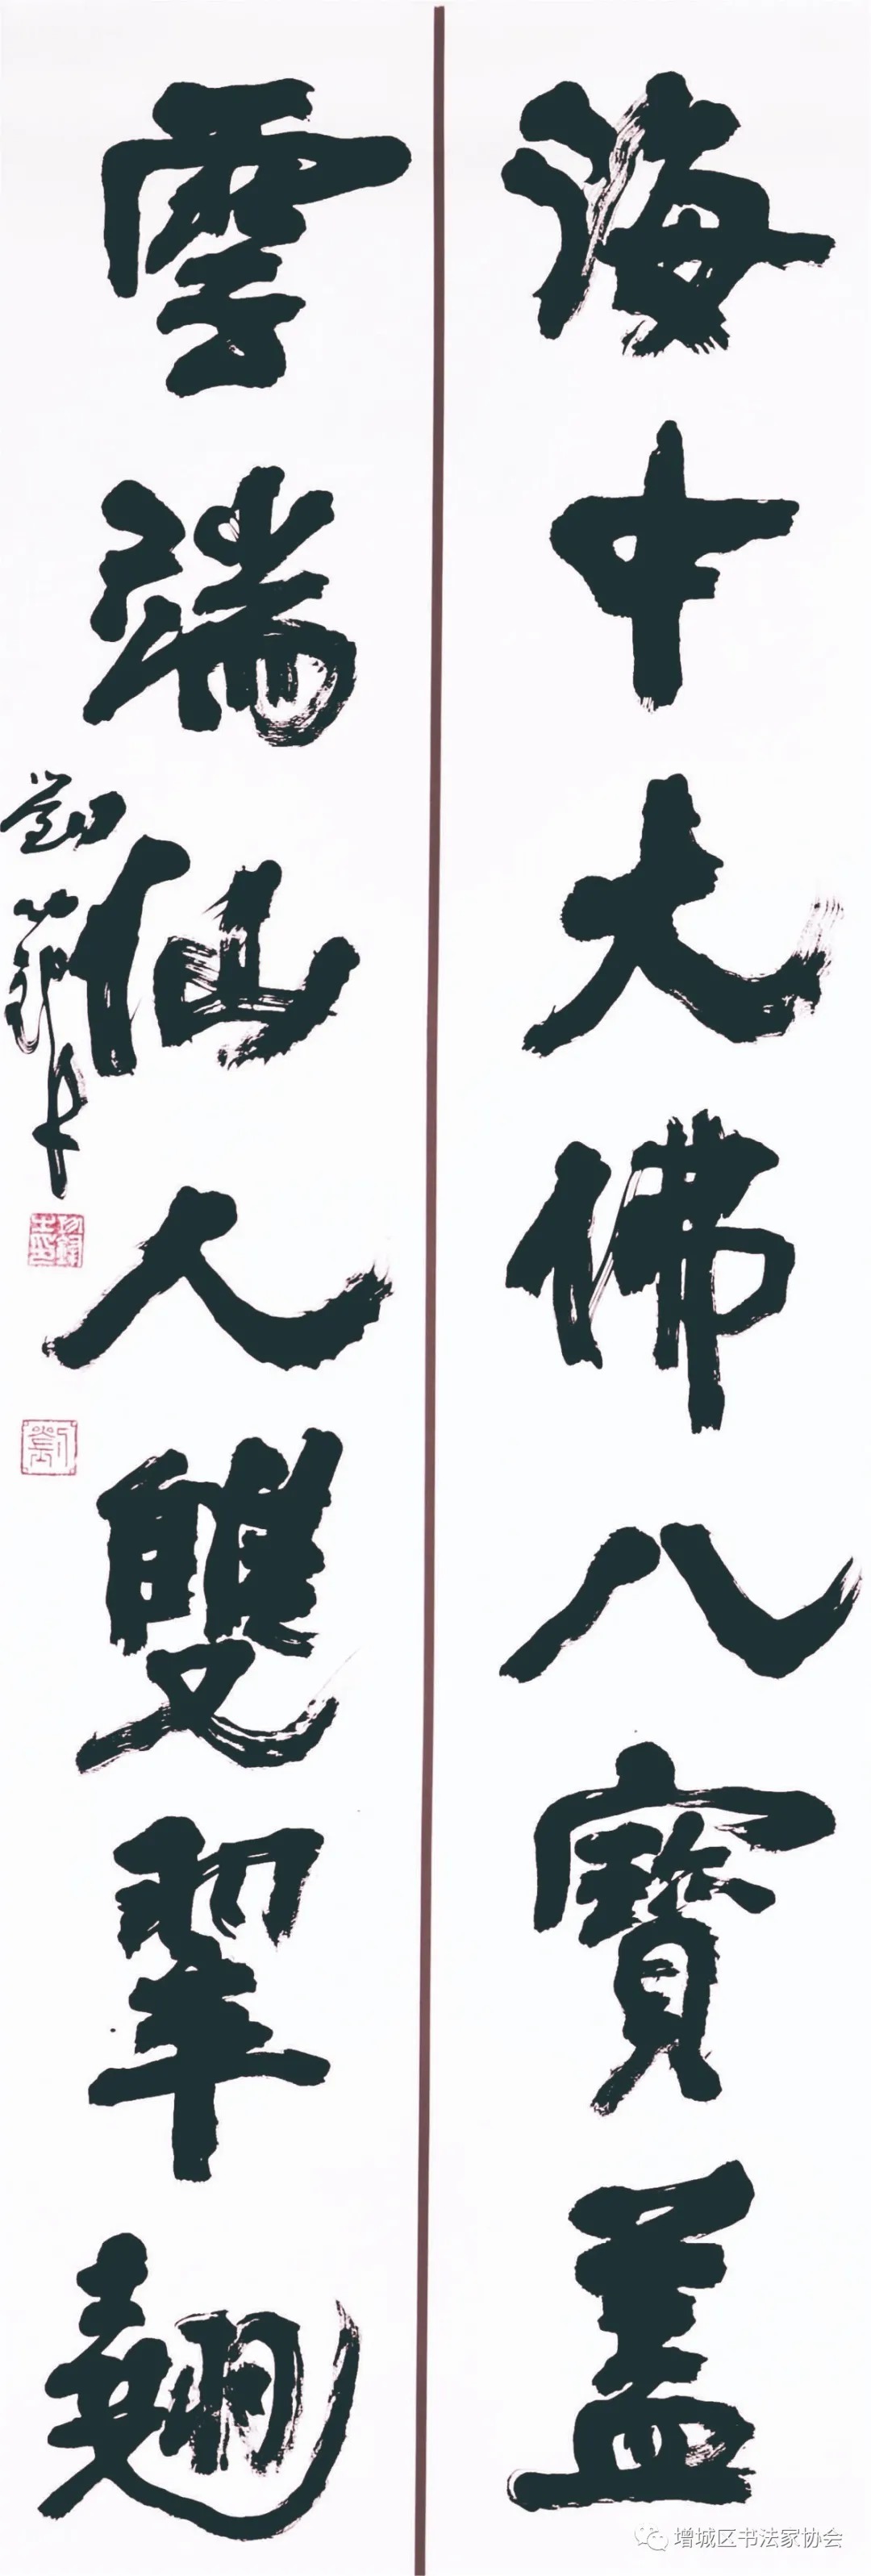 海中大佛八寶蓋
雲端仙人雙翠翹
增城区书法家协会